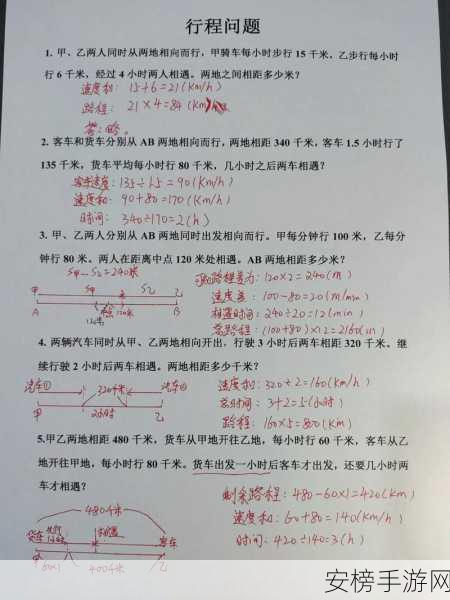 行程问题
1. 甲、乙两人同时从两地相向而行，甲骑车每小时步行 15 千米，乙步行每小时
行 6 千米，经过 4 小时两人相遇。两地之间相距多少米？
速度和: 15+6=21(km/h)
路程: 21×4=84(km)
答: 略。
2. 客车和货车分别从 AB 两地相向而行，两地相距 340 千米，客车 1.5 小时行了
135 千米，货车平均每小时行 80 千米，几小时之后两车相遇？
客车速度: 135÷1.5=90(km/h)
速度和: 90+80=170(km/h)
时间: 340÷170=2(h)
3. 甲、乙两人分别从 AB 两地同时出发相向而行。甲每分钟行 100 米，乙每分
钟行 80 米。两人在距离中点 120 米处相遇。AB 两地相距多少米？
S甲-S乙=240米
路程差为: 120×2=240(m)
甲 S甲 S乙 乙
速度差: 100-80=20(m/min)
A 120米 B
相遇时间: 240÷20=12(min)
总路程: (100+80)×12=2160(m)
4. 两辆汽车同时从甲、乙两地相向开出，行驶 3 小时后两车相距 320 千米。继
续行驶 2 小时后两车相遇。两地相距多少千米？
汽车① 320千米 汽车②
速度和: 320÷2=160(km/h)
总时间: 3+2=5(小时)
甲 2小时 乙
路程: 160×5=800(km)
5.甲乙两地相距 480 千米，货车从甲地开往乙地，每小时行 60 千米，客车从乙
地开往甲地，每小时行 80 千米。货车出发一小时后客车才出发，还要几小时两
车才相遇？
剩余路程: 480-60×1=420(km)
480千米
速度和: 60+80=140(km/h)
货车 相遇 客车
时间: 420÷140=3(h)
甲 60×1 乙
安榜手游网